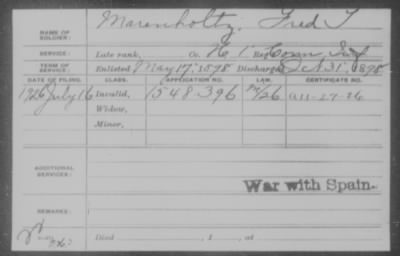 NAME OF SOLDIER: Marenholtz, Fred T
SERVICE: Late rank, Co. H, 1 Reg Conn Inf
TERM OF SERVICE: Enlisted May 17, 1898 Discharged Oct 31, 1898
DATE OF FILING. CLASS. APPLICATION NO. LAW. CERTIFICATE NO.
1926 July 16 Invalid, 1548396
Widow,
Minor,
ADDITIONAL SERVICES:
War with Spain.
REMARKS:
Died , 1 , at